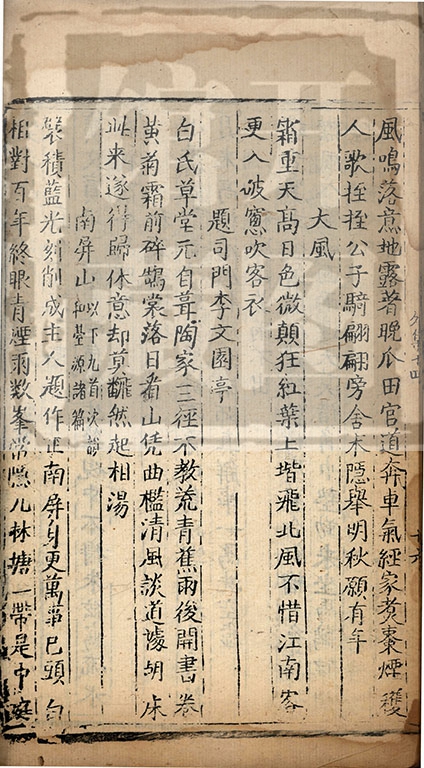 風鳴落蕉地露著晚瓜田官道奔車氣經家煑棗煙穫
人歌挃挃公子騎翩翩旁舍未隱舉明秋願有年
大風
霜重天髙日色微顛狂紅葉上堦飛北風不惜江南客
更入破窻吹客衣
題司門李文園亭
白氏草堂元自葺陶家三徑不教荒青蕉雨後開書卷
黃菊霜前碎鵠裳落日看山凭曲檻清風談道據胡床
此來遂得歸休意却莫飜然起相湯
南屏山 以下九首次韻和基源諸篇
襞積藍光刻削成主人題作正南屏自更萬事已頭白
相對百年終眼青煙雨數峯常隱几林塘一帶是中庭